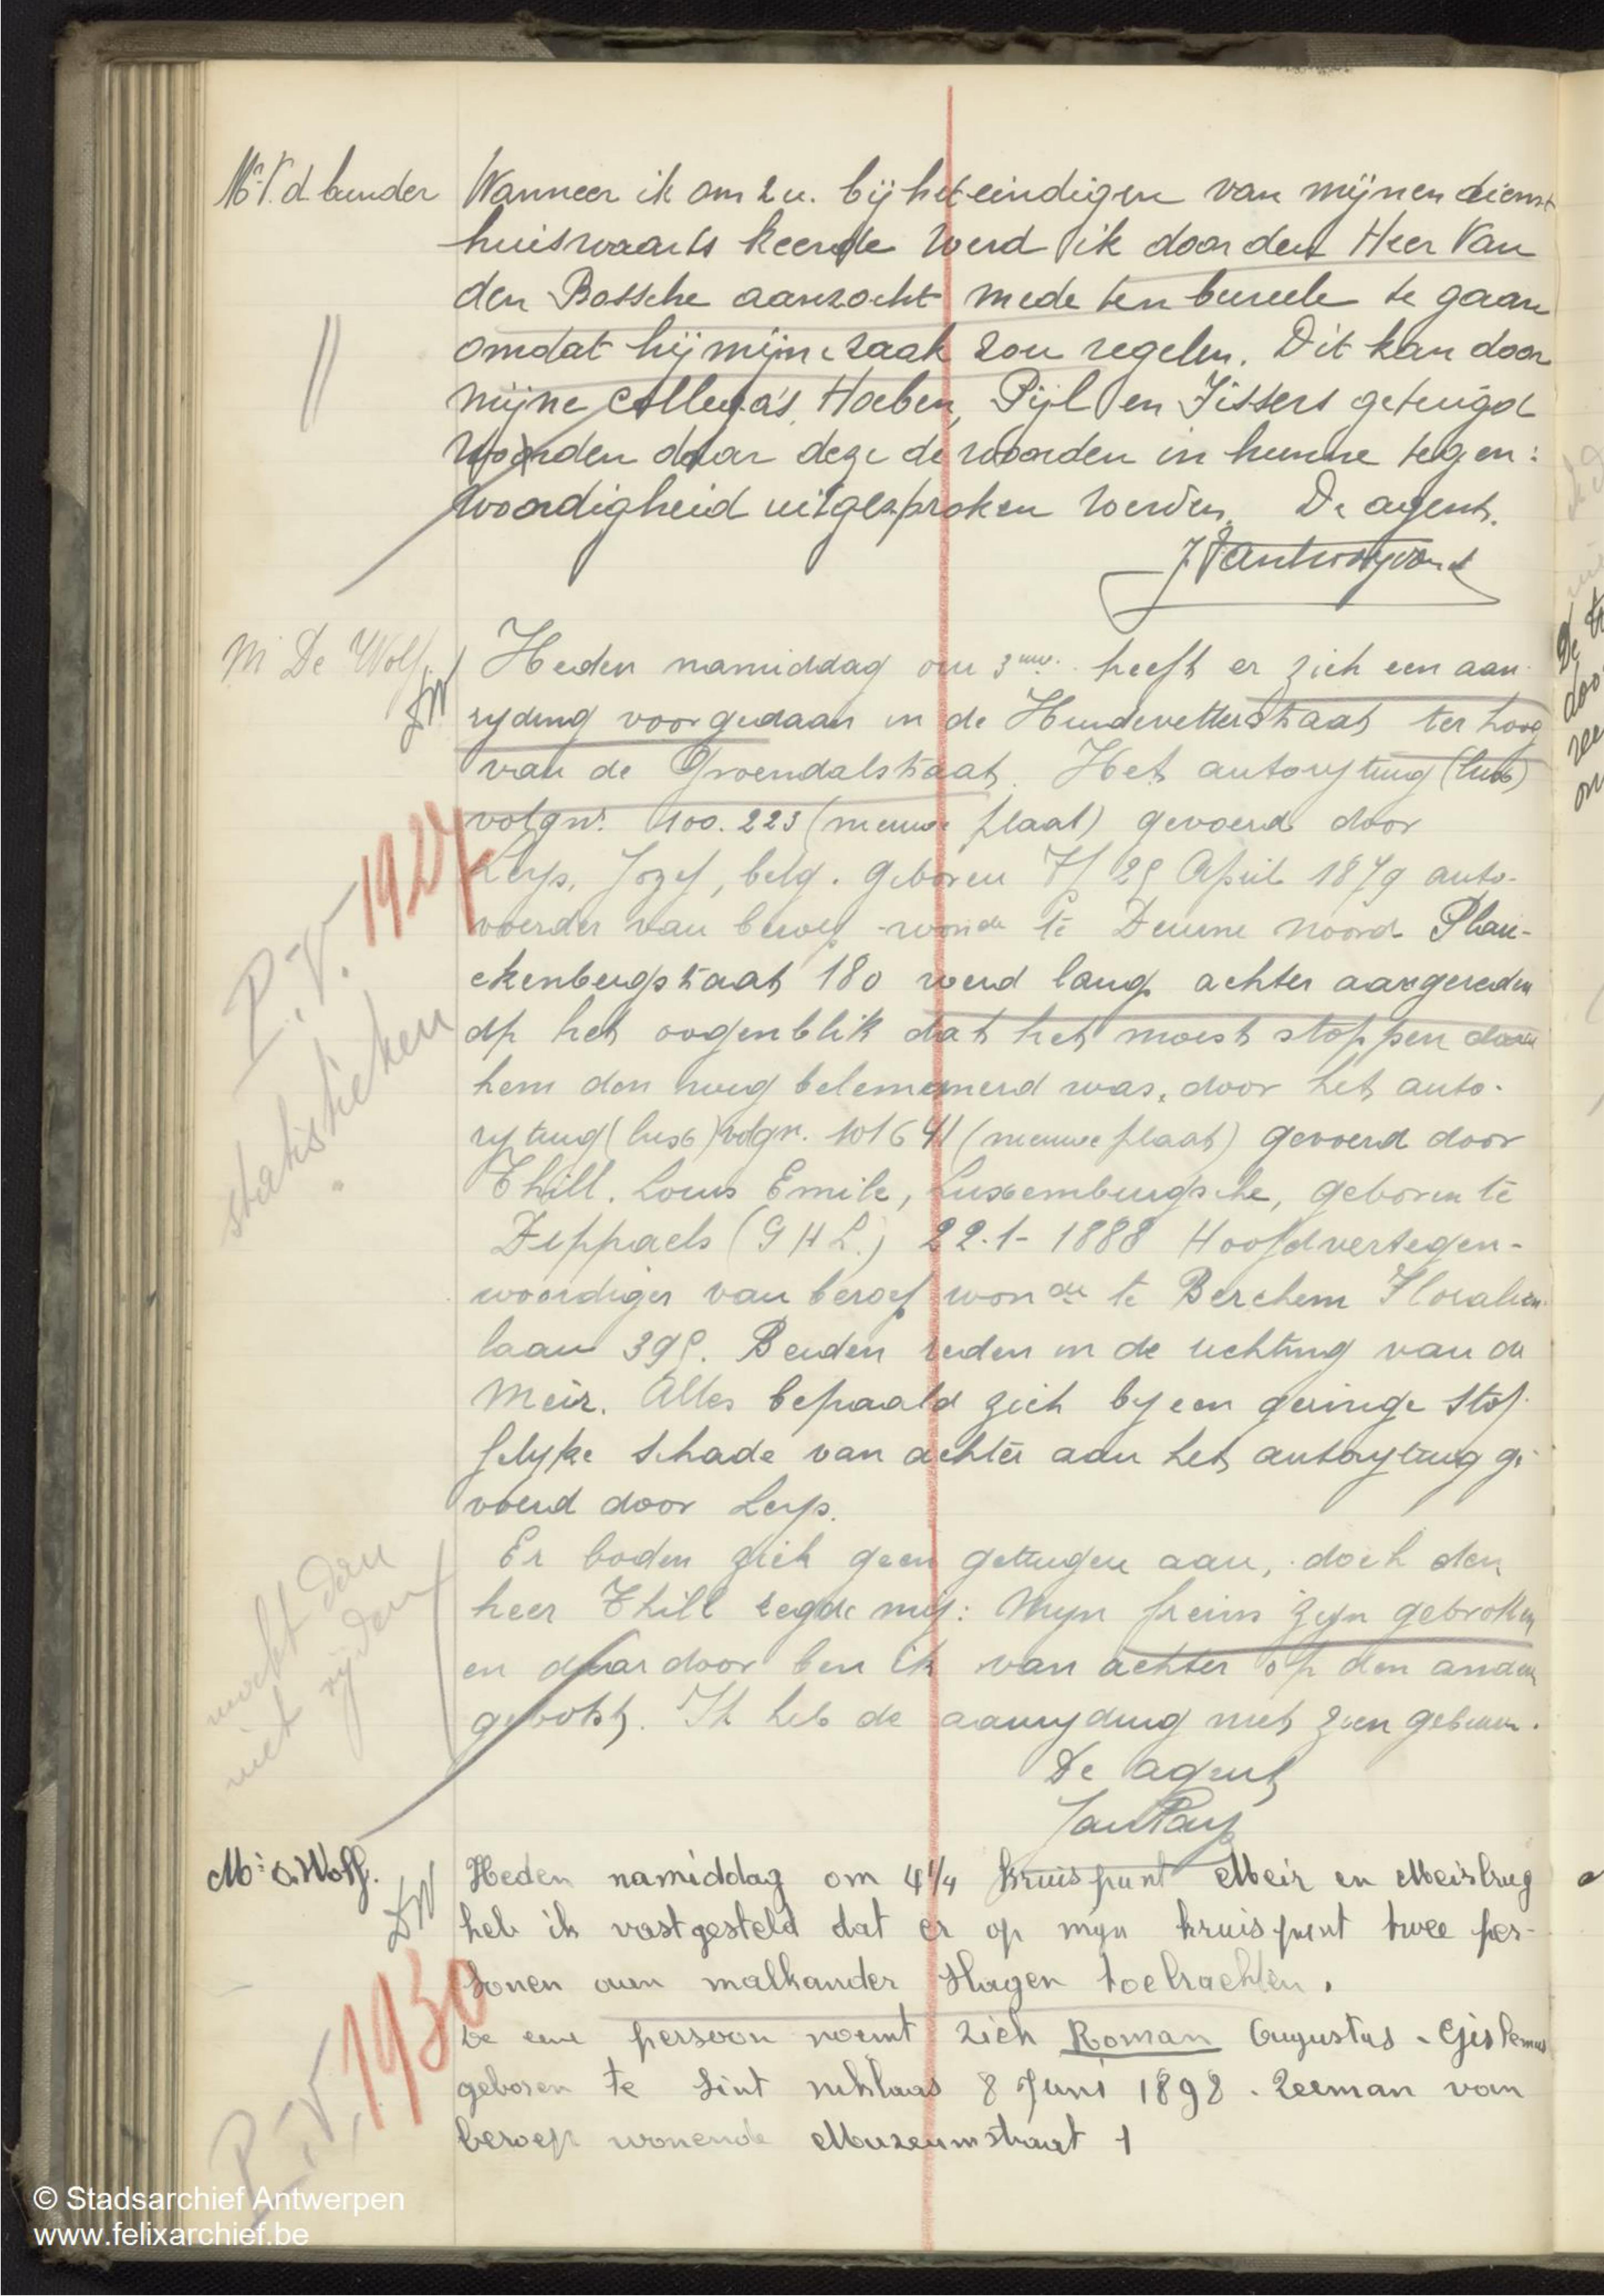 Mr V. d. bunder
Wanneer ik om 2 u. bij het eindigen van mijnen dienst
huiswaarts keerde werd ik door den Heer Van
den Bossche aanzocht mede ten bureele te gaan
omdat hij mijne zaak zou regelen. Dit kan door
mijne collega's, Hoeben, Pijl en Fissers getuigd
worden daar deze de woorden in hunne tegen:
woordigheid uitgesproken werden. De agent.
M De Wolf.
DW
Heden namiddag om 3 uur. heeft er zich een aan-
ryding voorgedaan in de Huidevetterstraat ter hoog
van de Groendalstraat. Het autorytuig (luxe)
volgnr. 100.223 (nieuwe plaat) gevoerd door
Leys, Jozef, belg. geboren 29 April 1879 auto-
voerder van beroep wonde te Deurne Noord Plan-
ckenbergstraat 180 werd langs achter aangereden
op het oogenblik dat het moest stoppen daar
hem den weg belemmerd was, door het auto-
rytuig (luxe) volgn. 101641 (nieuwe plaat) gevoerd door
Thill. Louis Emile, Luxemburgsche, geboren te
Dippach (G H L.) 22-1-1888 Hoofdvertegen-
woordiger van beroep wonde te Berchem Floralien
laan 395. Beiden reden in de richting van de
Meir. Alles bepaald zich by een geringe stof-
felyke schade van achter aan het autorytuig ge-
voerd door Leys.
Er boden zich geen getuigen aan, doch den
heer Thill zegde mij: Myn freins zyn gebroken
en daardoor ben ik van achter op den andere
gebotst. Ik heb de aanryding niet zien gebeuren.
De agent
P.V. 1927
statistieken
mocht dan
niet rijden
Mr De Wolf.
DW
Heden namiddag om 4 1/4 kruispunt Meir en Meirbrug
heb ik vastgesteld dat er op myn kruispunt twee per-
sonen aan malkander slagen toebrachten.
De eene persoon noemt zich Roman Augustus - Gislenus
geboren te Sint niklaas 8 Juni 1898 - Zeeman van
beroep wonende Muzeumstraat 1
P.V. 1930
© Stadsarchief Antwerpen
www.felixarchief.be